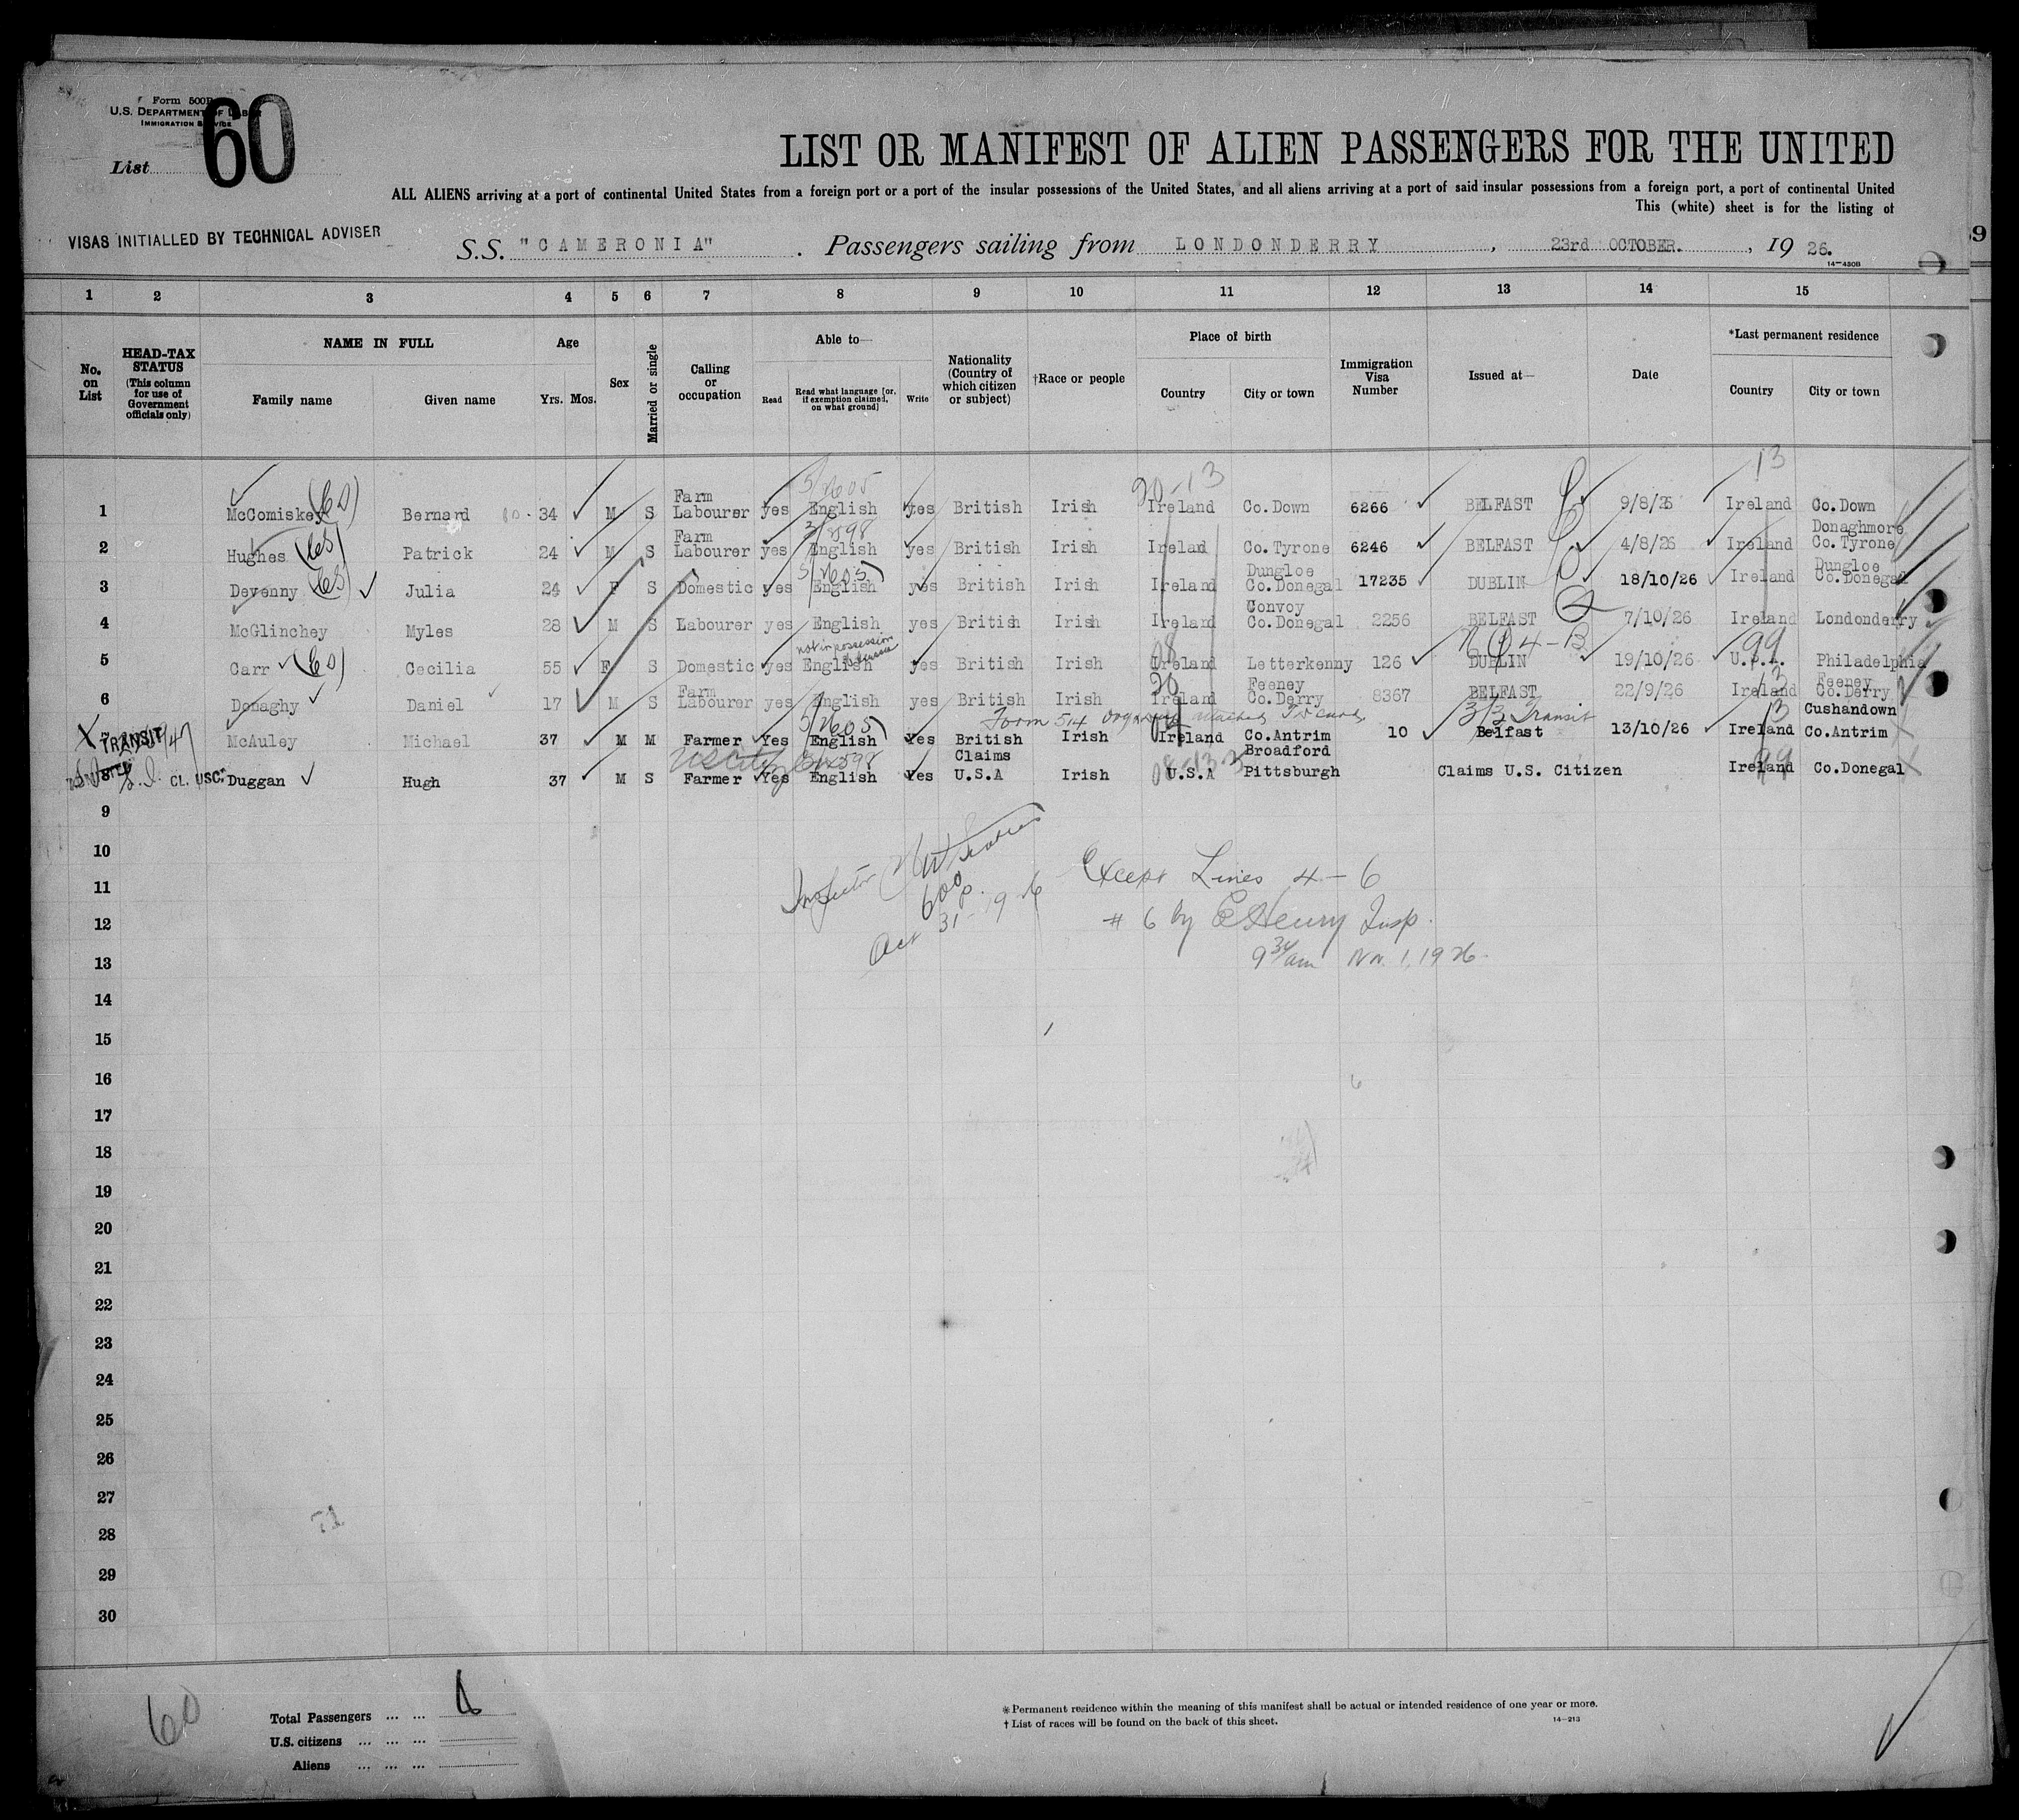 Form 500B
U.S. DEPARTMENT OF LABOR
IMMIGRATION SERVICE
List 60
LIST OR MANIFEST OF ALIEN PASSENGERS FOR THE UNITED
ALL ALIENS arriving at a port of continental United States from a foreign port or a port of the insular possessions of the United States, and all aliens arriving at a port of said insular possessions from a foreign port, a port of continental United
This (white) sheet is for the listing of
VISAS INITIALLED BY TECHNICAL ADVISER
S.S. "CAMERONIA". Passengers sailing from LONDONDERRY, 23rd OCTOBER., 19 26.
14-430B
1 2 3 4 5 6 7 8 9 10 11 12 13 14 15
No. on List
HEAD-TAX STATUS (This column for use of Government officials only)
NAME IN FULL
Family name Given name
Age
Yrs. Mos.
Sex
Married or single
Calling or occupation
Able to—
Read Read what language [or, if exemption claimed, on what ground] Write
Nationality (Country of which citizen or subject)
†Race or people
Place of birth
Country City or town
Immigration Visa Number
Issued at—
Date
*Last permanent residence
Country City or town
5/2605 20-13 13
1 McComiskey Bernard 34 M S Farm Labourer yes English yes British Irish Ireland Co.Down 6266 BELFAST 9/8/26 Ireland Co.Down
2 Hughes Patrick 24 M S Farm Labourer yes English yes British Irish Ireland Co.Tyrone 6246 BELFAST 4/8/26 Ireland Donaghmore Co.Tyrone
5/2605
3 Devenny Julia 24 F S Domestic yes English yes British Irish Ireland Dungloe Co.Donegal 17235 DUBLIN 18/10/26 Ireland Dungloe Co.Donegal
4 McGlinchey Myles 28 M S Labourer yes English yes British Irish Ireland Convoy Co.Donegal 2256 BELFAST 7/10/26 Ireland Londonderry
not in possession 08 4-B 99
5 Carr Cecilia 55 F S Domestic yes English yes British Irish Ireland Letterkenny 126 DUBLIN 19/10/26 U.S.A. Philadelphia
20 13
6 Donaghy Daniel 17 M S Farm Labourer yes English yes British Irish Ireland Feeney Co.Derry 8367 BELFAST 22/9/26 Ireland Feeney Co.Derry
5/2605 Form 514 attached 3/3 Transit 13
X TRANSIT 7 McAuley Michael 37 M M Farmer Yes English Yes British Irish Ireland Co.Antrim 10 Belfast 13/10/26 Ireland Cushandown Co.Antrim
US Citizen 99
8 CL. USC. Duggan Hugh 37 M S Farmer Yes English Yes Claims U.S.A Irish U.S.A Broadford Pittsburgh Claims U.S. Citizen Ireland Co.Donegal
9
10
11
12
13
14
15
16
17
18
19
20
21
22
23
24
25
26
27
28
29
30
Inspector
600 p.
Oct 31-1926
Except Lines 4-6
# 6 by E Henry Insp.
9 30/am Nov. 1, 1926.
60
Total Passengers ... ...
U.S. citizens ... ... ...
Aliens ... ... ...
* Permanent residence within the meaning of this manifest shall be actual or intended residence of one year or more.
† List of races will be found on the back of this sheet.
14-213